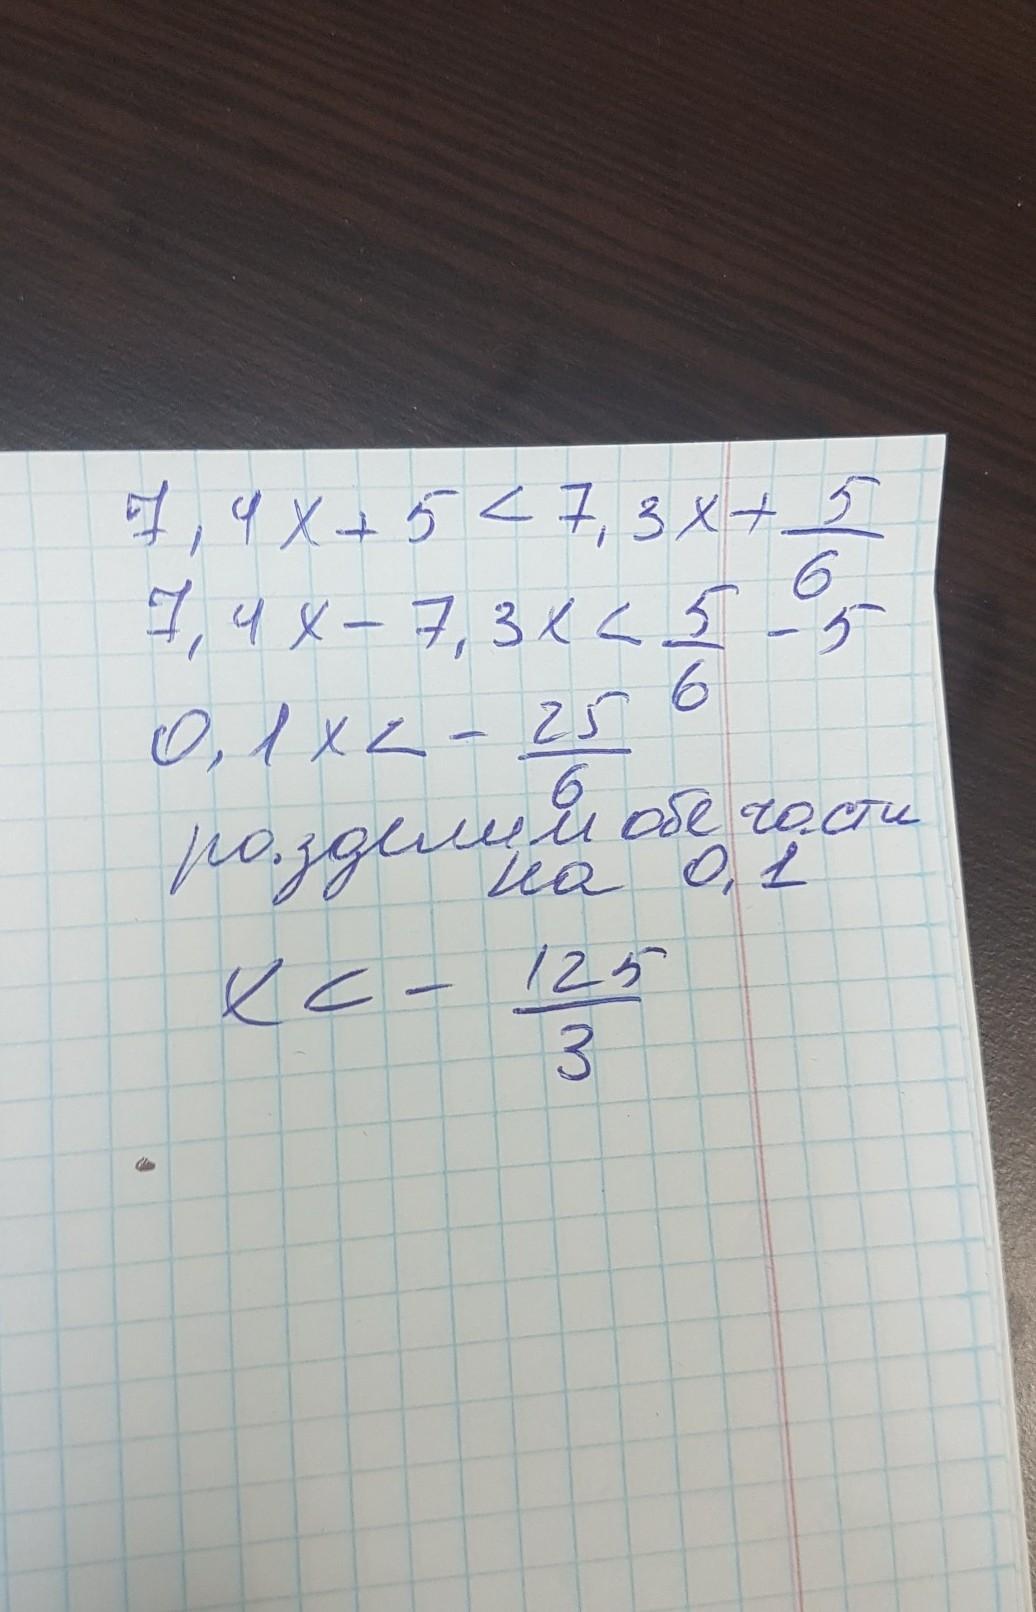 7,4x+5<7,3x+5/6
7,4x-7,3x<5/6-5
0,1x<-25/6
разделим обе части
на 0,1
x<-125/3